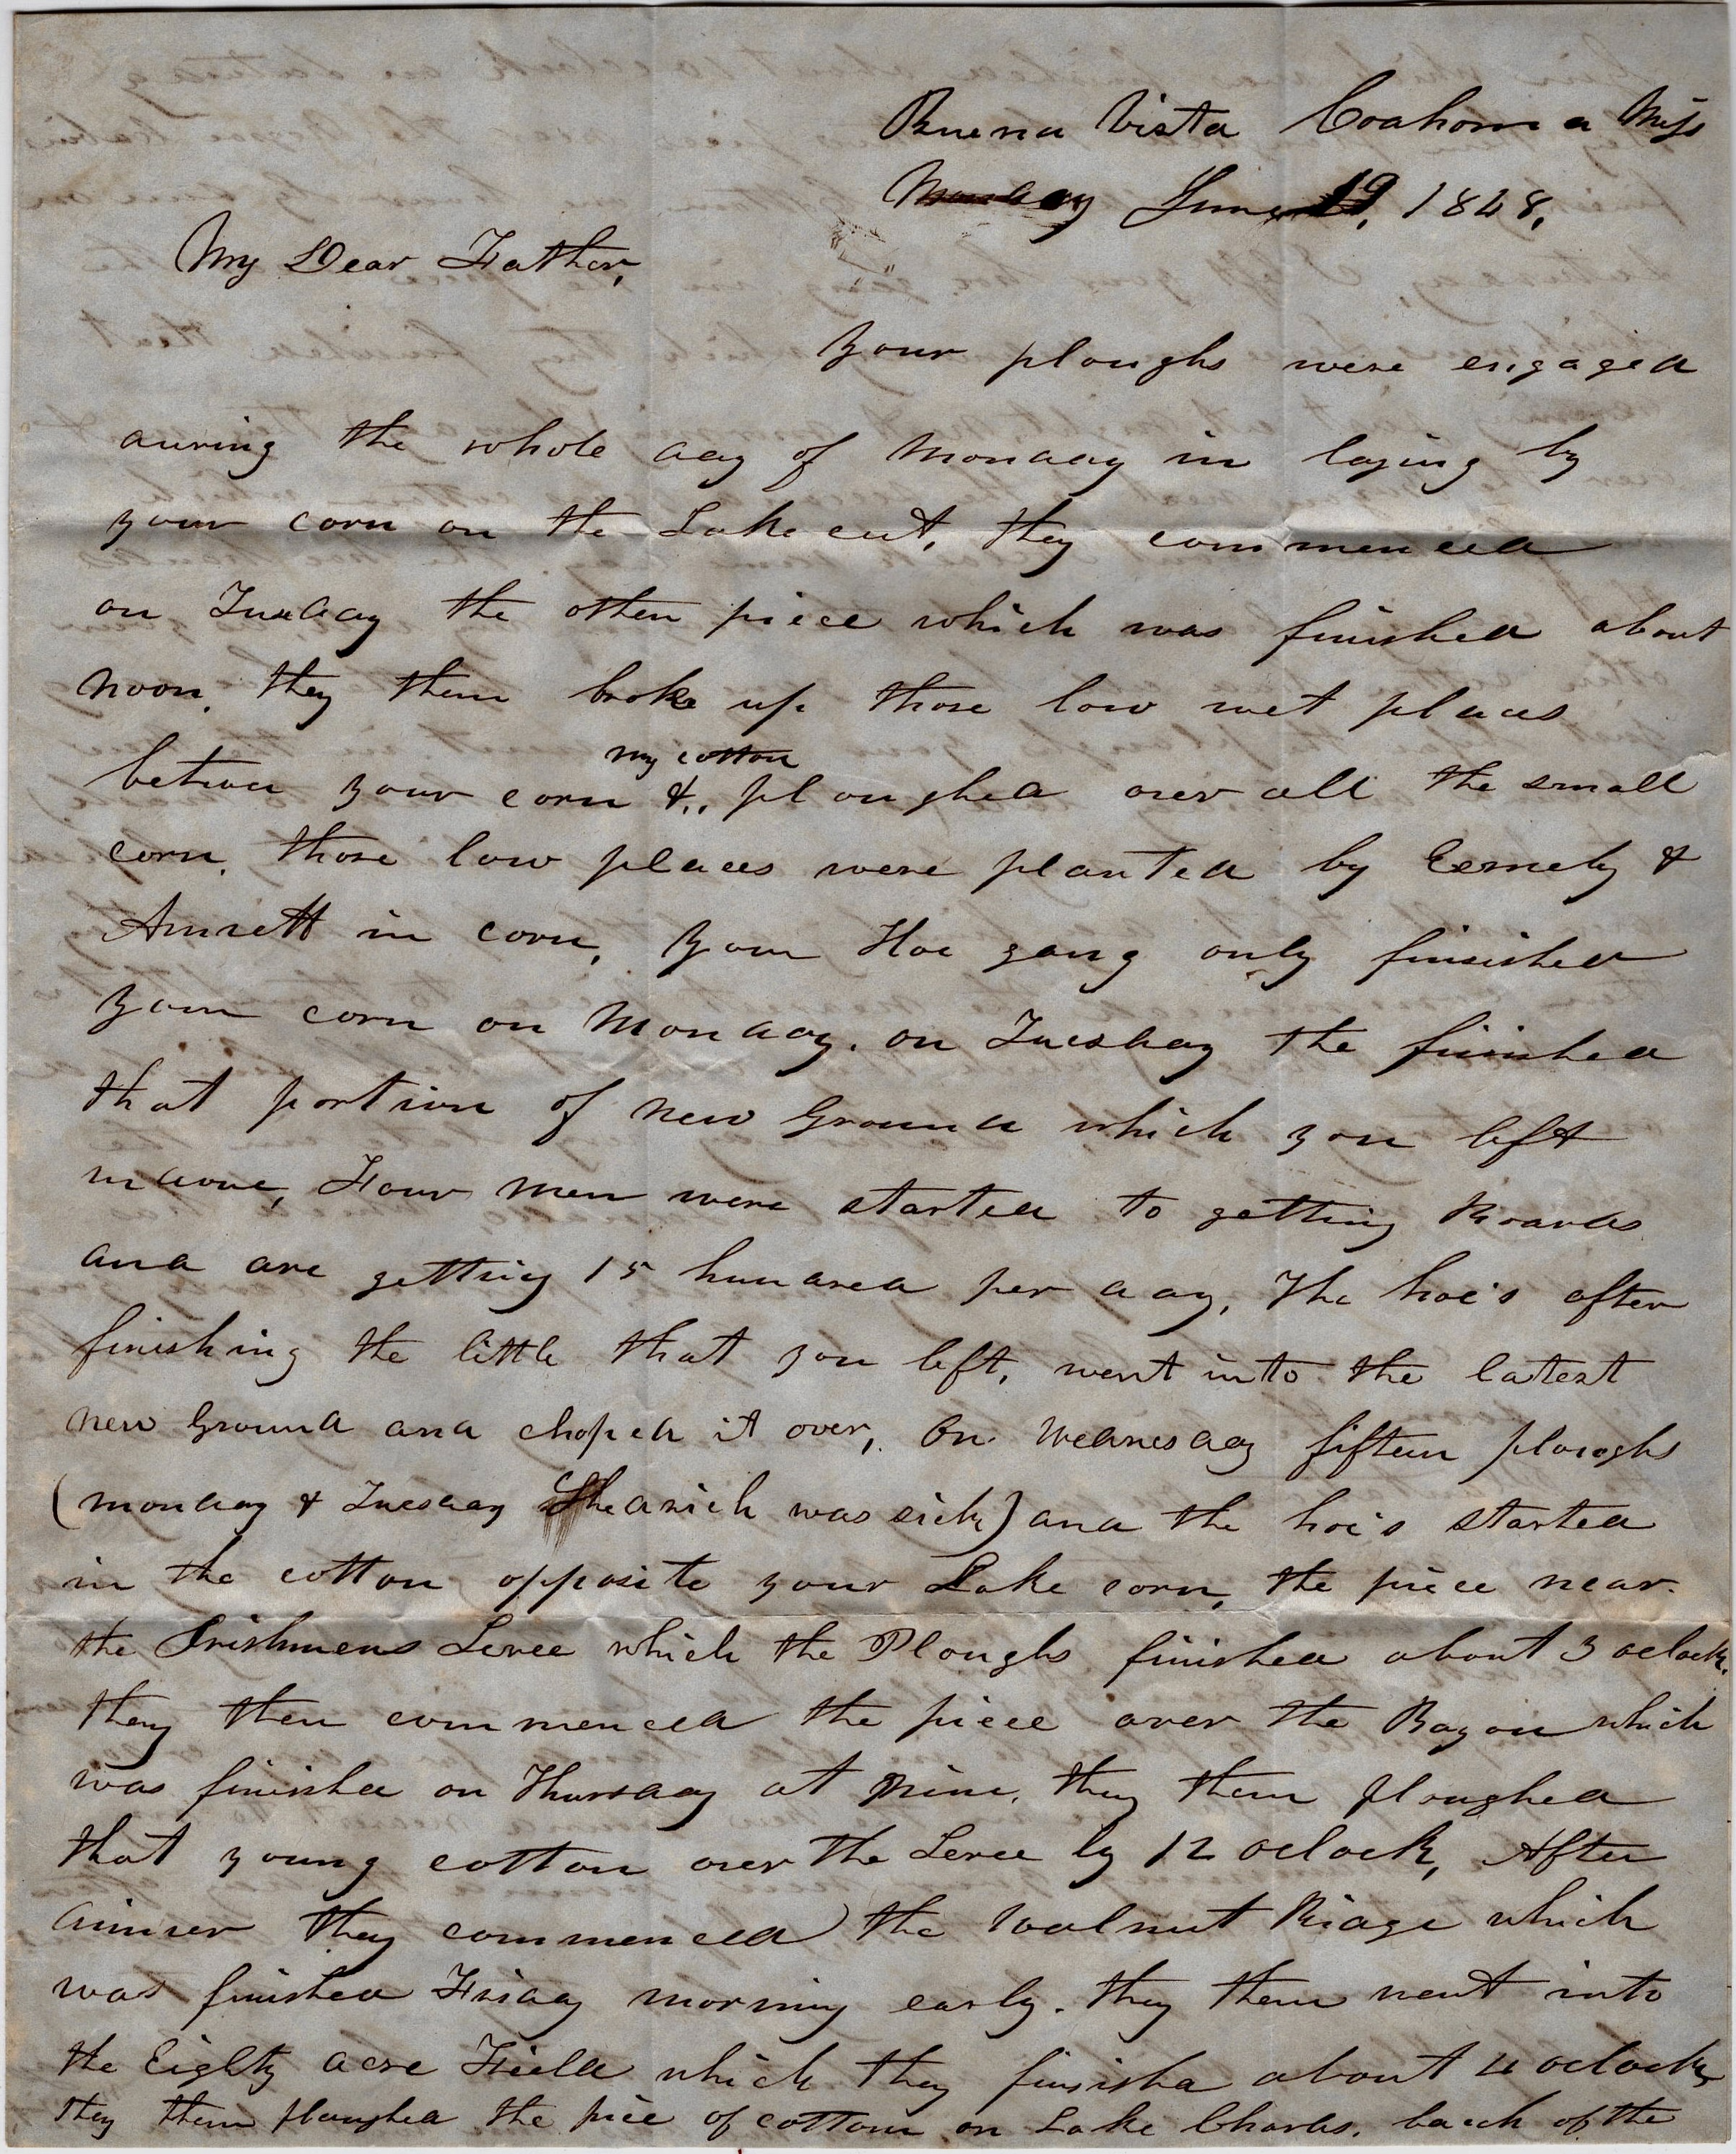 Buena Vista Coahoma Miss
Monday June 19, 1848.
My Dear Father,
Your ploughs were engaged
during the whole day of Monday in laying by
your corn on the Lake cut, they commenced
on Tuesday the other piece which was finished about
noon. they then broke up those low wet places
my cotton
betwen your corn &,, ploughed over all the small
corn. those low places were planted by Eemely &
in corn, Your Hoe gang only finished
your corn on Monday. on Tuesday the finished
that portion of new Ground which you left
undone, Four men were started to getting Boards
and are getting 15 hundred per day, The hoe's after
finishing the little that you left, went into the latest
new Ground and choped it over, On Wednesday fifteen ploughs
(monday & Tuesday was sick) and the hoe's started
in the cotton opposite your Lake corn, the piece near
the Irishmens Levee which the Ploughs finished about 3 oclock.
they then commenced the piece over the Bayou which
was finished on Thursday at nine. they then ploughed
that young cotton over the Levee by 12 oclock, After
dinner they commenced the Walnut Ridge which
was finished Friday morning early. they then went into
the Eighty acre Field which they finishd about 4 oclock,
they then ploughed the piece of cotton on Lake Charles. back of the